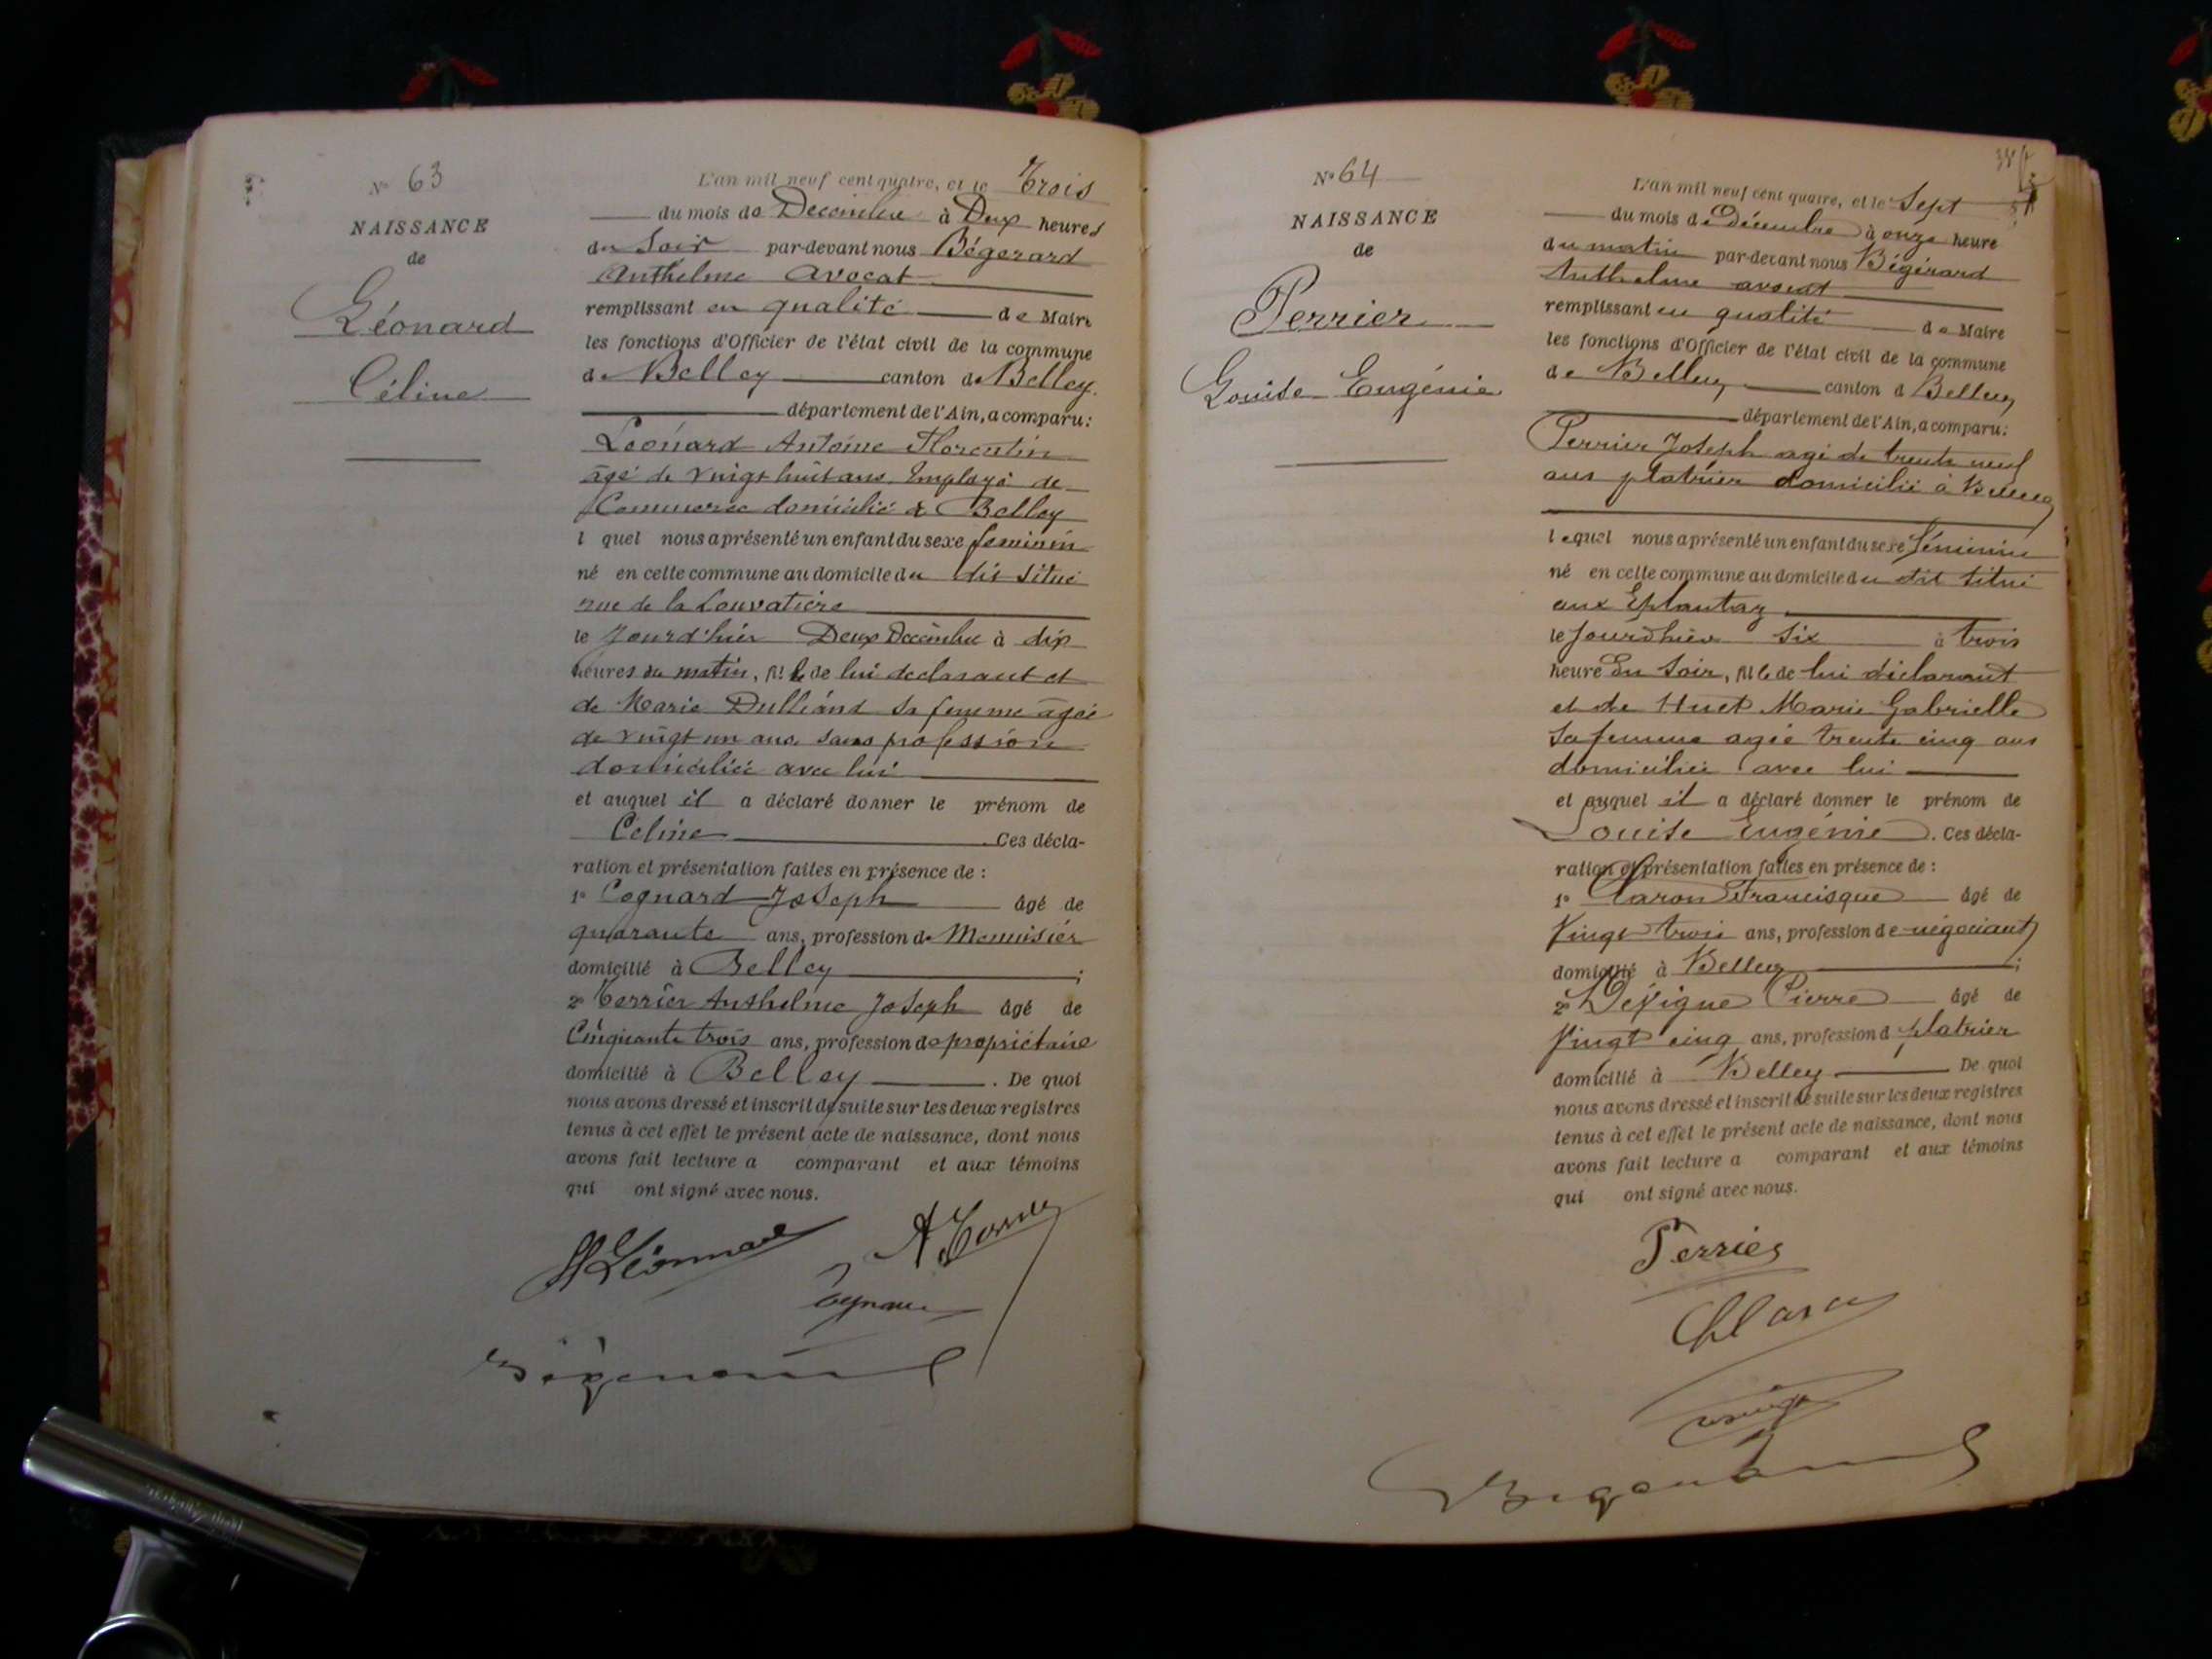 Nº 63
NAISSANCE
de
Léonard
Céline
L'an mil neuf cent quatre, et le Trois
du mois de Décembre à Deux heures
du Soir par-devant nous Bégerard
Anthelme Avocat
remplissant en qualité de Maire
les fonctions d'Officier de l'état civil de la commune
de Belley canton de Belley.
département de l'Ain, a comparu:
Léonard Antoine Florentin
âgé de vingt huit ans, Employé de
Commerce domicilié à Belley
l quel nous a présenté un enfant du sexe feminin
né en cette commune au domicile du dit situé
rue de la Louvatière
le jourd'hier Deux Decembre à dix
heures du matin, fille de lui declarant et
de Marie Dulliand sa femme âgée
de vingt un ans, sans profession
domiciliée avec lui
et auquel il a déclaré donner le prénom de
Céline Ces décla-
ration et présentation faites en présence de :
1º Cognard Joseph âgé de
quarante ans, profession de Menuisier
domicilié à Belley ;
2º Terrier Anthelme Joseph âgé de
Cinquante trois ans, profession de propriétaire
domicilié à Belley . De quoi
nous avons dressé et inscrit de suite sur les deux registres
tenus à cet effet le présent acte de naissance, dont nous
avons fait lecture a comparant et aux témoins
qui ont signé avec nous.
Léonard
Bégerard
Nº 64
NAISSANCE
de
Perrier
Louise Eugénie
L'an mil neuf cent quatre, et le Sept
du mois de Décembre à onze heure
du matin par-devant nous Bégérard
Anthelme avocat
remplissant en qualité de Maire
les fonctions d'Officier de l'état civil de la commune
de Belley canton d Belley
département de l'Ain, a comparu:
Perrier Joseph agé de trente neuf
ans platrier domicilié à Belley
lequel nous a présenté un enfant du sexe féminin
né en cette commune au domicile du dit situé
aux Eplantaz
le jourd'hier six à trois
heure du soir, fille de lui déclarant
et de Huet Marie Gabrielle
sa femme agée trente cinq ans
domiciliée avec lui
et auquel il a déclaré donner le prénom de
Louise Eugénie . Ces décla-
ration et présentation faites en présence de :
1º Claron Francisque âgé de
Vingt trois ans, profession de négociant
domicilié à Belley ;
2º Dévigne Pierre âgé de
Vingt cinq ans, profession d platrier
domicilié à Belley De quoi
nous avons dressé et inscrit de suite sur les deux registres
tenus à cet effet le présent acte de naissance, dont nous
avons fait lecture a comparant et aux témoins
qui ont signé avec nous.
Perrier
Claron
Bégerard